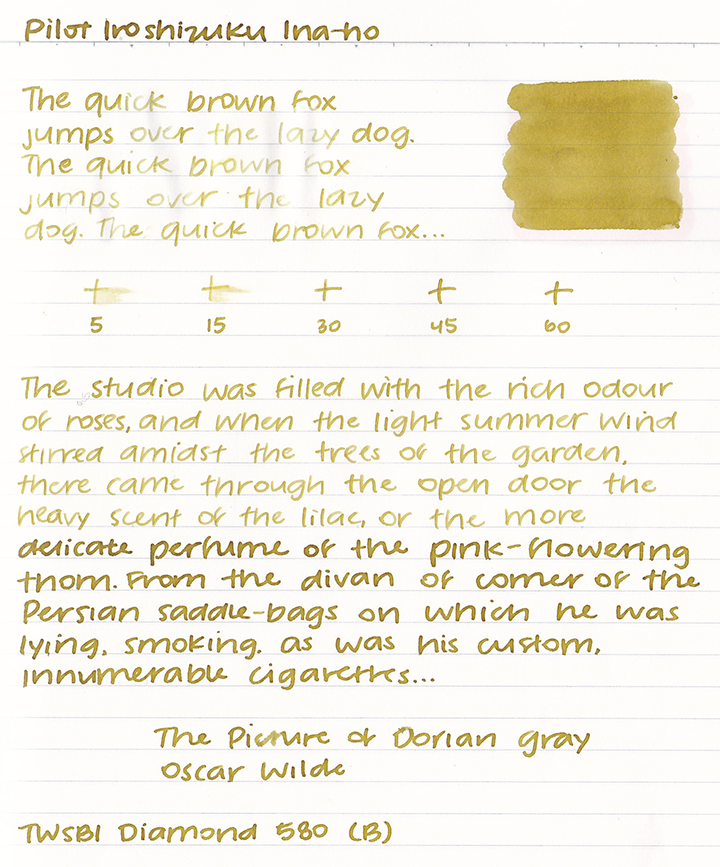 Pilot Iroshizuku Ina-ho
The quick brown fox
jumps over the lazy dog.
The quick brown fox
jumps over the lazy
dog. The quick brown fox...
5 15 30 45 60
The studio was filled with the rich odour
of roses, and when the light summer wind
stirred amidst the trees of the garden,
there came through the open door the
heavy scent of the lilac, or the more
delicate perfume of the pink-flowering
thorn. From the divan of corner of the
Persian saddle-bags on which he was
lying, smoking, as was his custom,
innumerable cigarettes...
The Picture of Dorian gray
Oscar Wilde
TWSBI Diamond 580 (B)